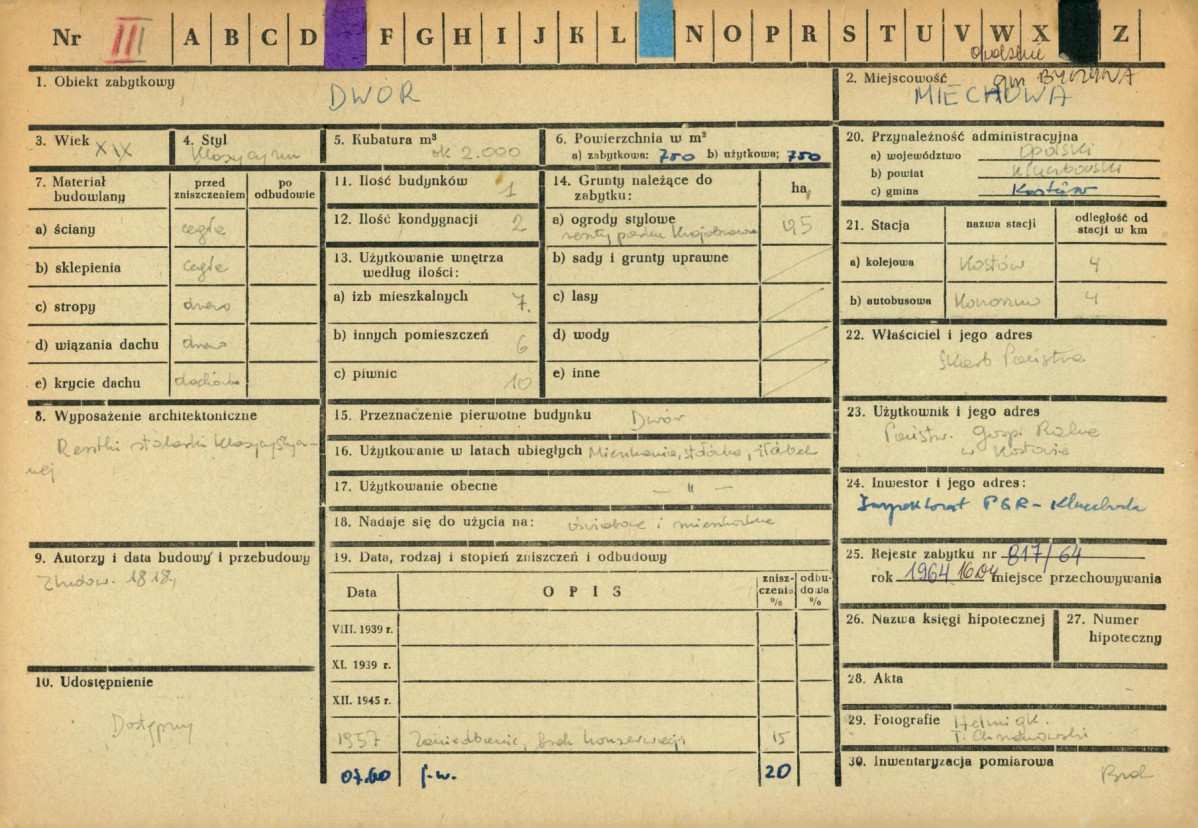 Nr III A B C D F G H I J K L N O P R S T U V W X Z
opolskie
gm BYCZYNA
1. Obiekt zabytkowy
DWÓR
2. Miejscowość
MIECHOWA
3. Wiek XIX
4. Styl
Klasycyzm
5. Kubatura m³
ok 2.000
6. Powierzchnia w m²
a) zabytkowa: 750 b) użytkowa; 750
7. Materiał budowlany
przed zniszczeniem
po odbudowie
a) ściany cegła
b) sklepienia cegła
c) stropy drewno
d) wiązania dachu drewno
e) krycie dachu dachówka
8. Wyposażenie architektoniczne
Resztki stolarki klasycystycz-
nej
9. Autorzy i data budowy i przebudowy
Zbudow. 1818,
10. Udostępnienie
Dostępny
11. Ilość budynków 1
12. Ilość kondygnacji 2
13. Użytkowanie wnętrza
według ilości:
a) izb mieszkalnych 7.
b) innych pomieszczeń 6
c) piwnic 10
14. Grunty należące do
zabytku: ha
a) ogrody stylowe
resztki parku krajobrazow. 0,5
b) sady i grunty uprawne
c) lasy
d) wody
e) inne
15. Przeznaczenie pierwotne budynku Dwór
16. Użytkowanie w latach ubiegłych Mieszkania, stołówka, żłobek
17. Użytkowanie obecne — " —
18. Nadaje się do użycia na: oświatowe i mieszkalne
19. Data, rodzaj i stopień zniszczeń i odbudowy
Data OPIS znisz-czenia % odbu-dowa %
VIII. 1939 r.
XI. 1939 r.
XII. 1945 r.
1957 Zaniedbanie, brak konserwacji 15
07.60 j.w. 20
20. Przynależność administracyjna
a) województwo opolski
b) powiat kluczborski
c) gmina Kostów
21. Stacja nazwa stacji odległość od stacji w km
a) kolejowa Kostów 4
b) autobusowa 4
22. Właściciel i jego adres
Skarb Państwa
23. Użytkownik i jego adres
Państw. Gosp. Rolne
w Kostowie
24. Inwestor i jego adres:
Inspektorat PGR - Kluczbork
25. Rejestr zabytku nr 817/64
rok 1964 16.04 miejsce przechowywania
26. Nazwa księgi hipotecznej
27. Numer
hipoteczny
28. Akta
29. Fotografie Helmigk.
T. Chrzanowski
30. Inwentaryzacja pomiarowa
Brak